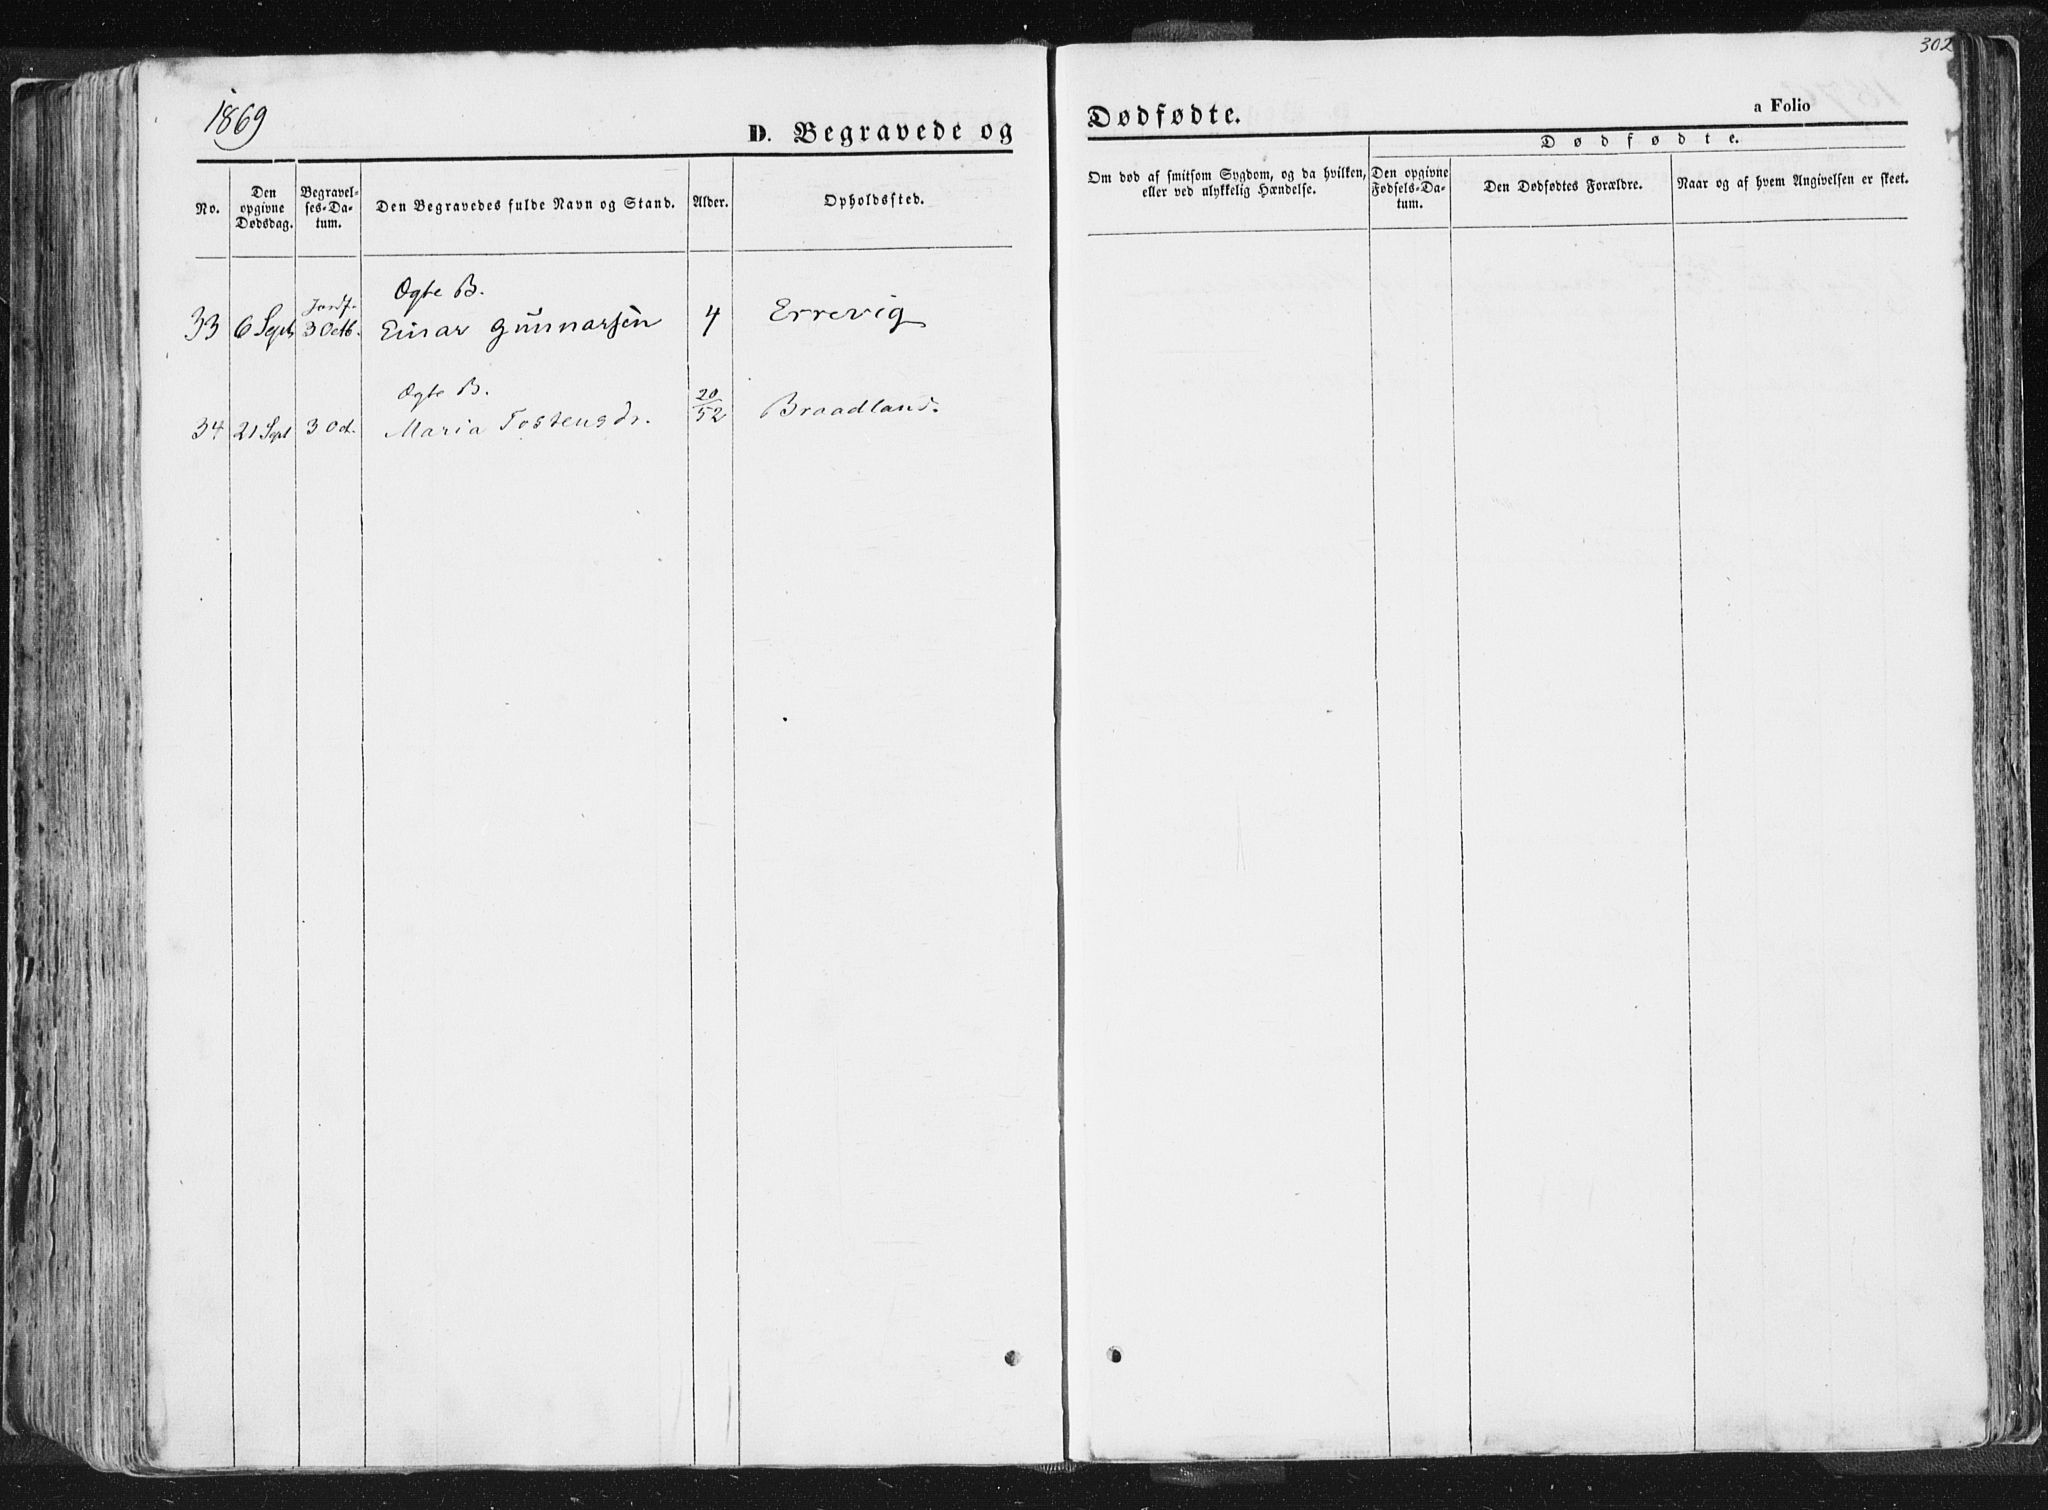 302
1869
D. Begravede og Dødfødte.
a Folio
No.
Den opgivne Dødsdag.
Begravelses-Datum.
Den Begravedes fulde Navn og Stand.
Alder.
Opholdssted.
Om død af smitsom Sygdom, og da hvilken,
eller ved ulykkelig Hændelse.
Dødfødte.
Den opgivne Fødsels-Datum.
Den Dødfødtes Forældre.
Naar og af hvem Angivelsen er skeet.
Jordf. Ægte B.
33 6 Sept. 3 Octb. Einar Gunnarsen 4 Errevig
Ægte B.
34 21 Sept 3 Oct. Maria Tostensdr. 20/52 Braadland.